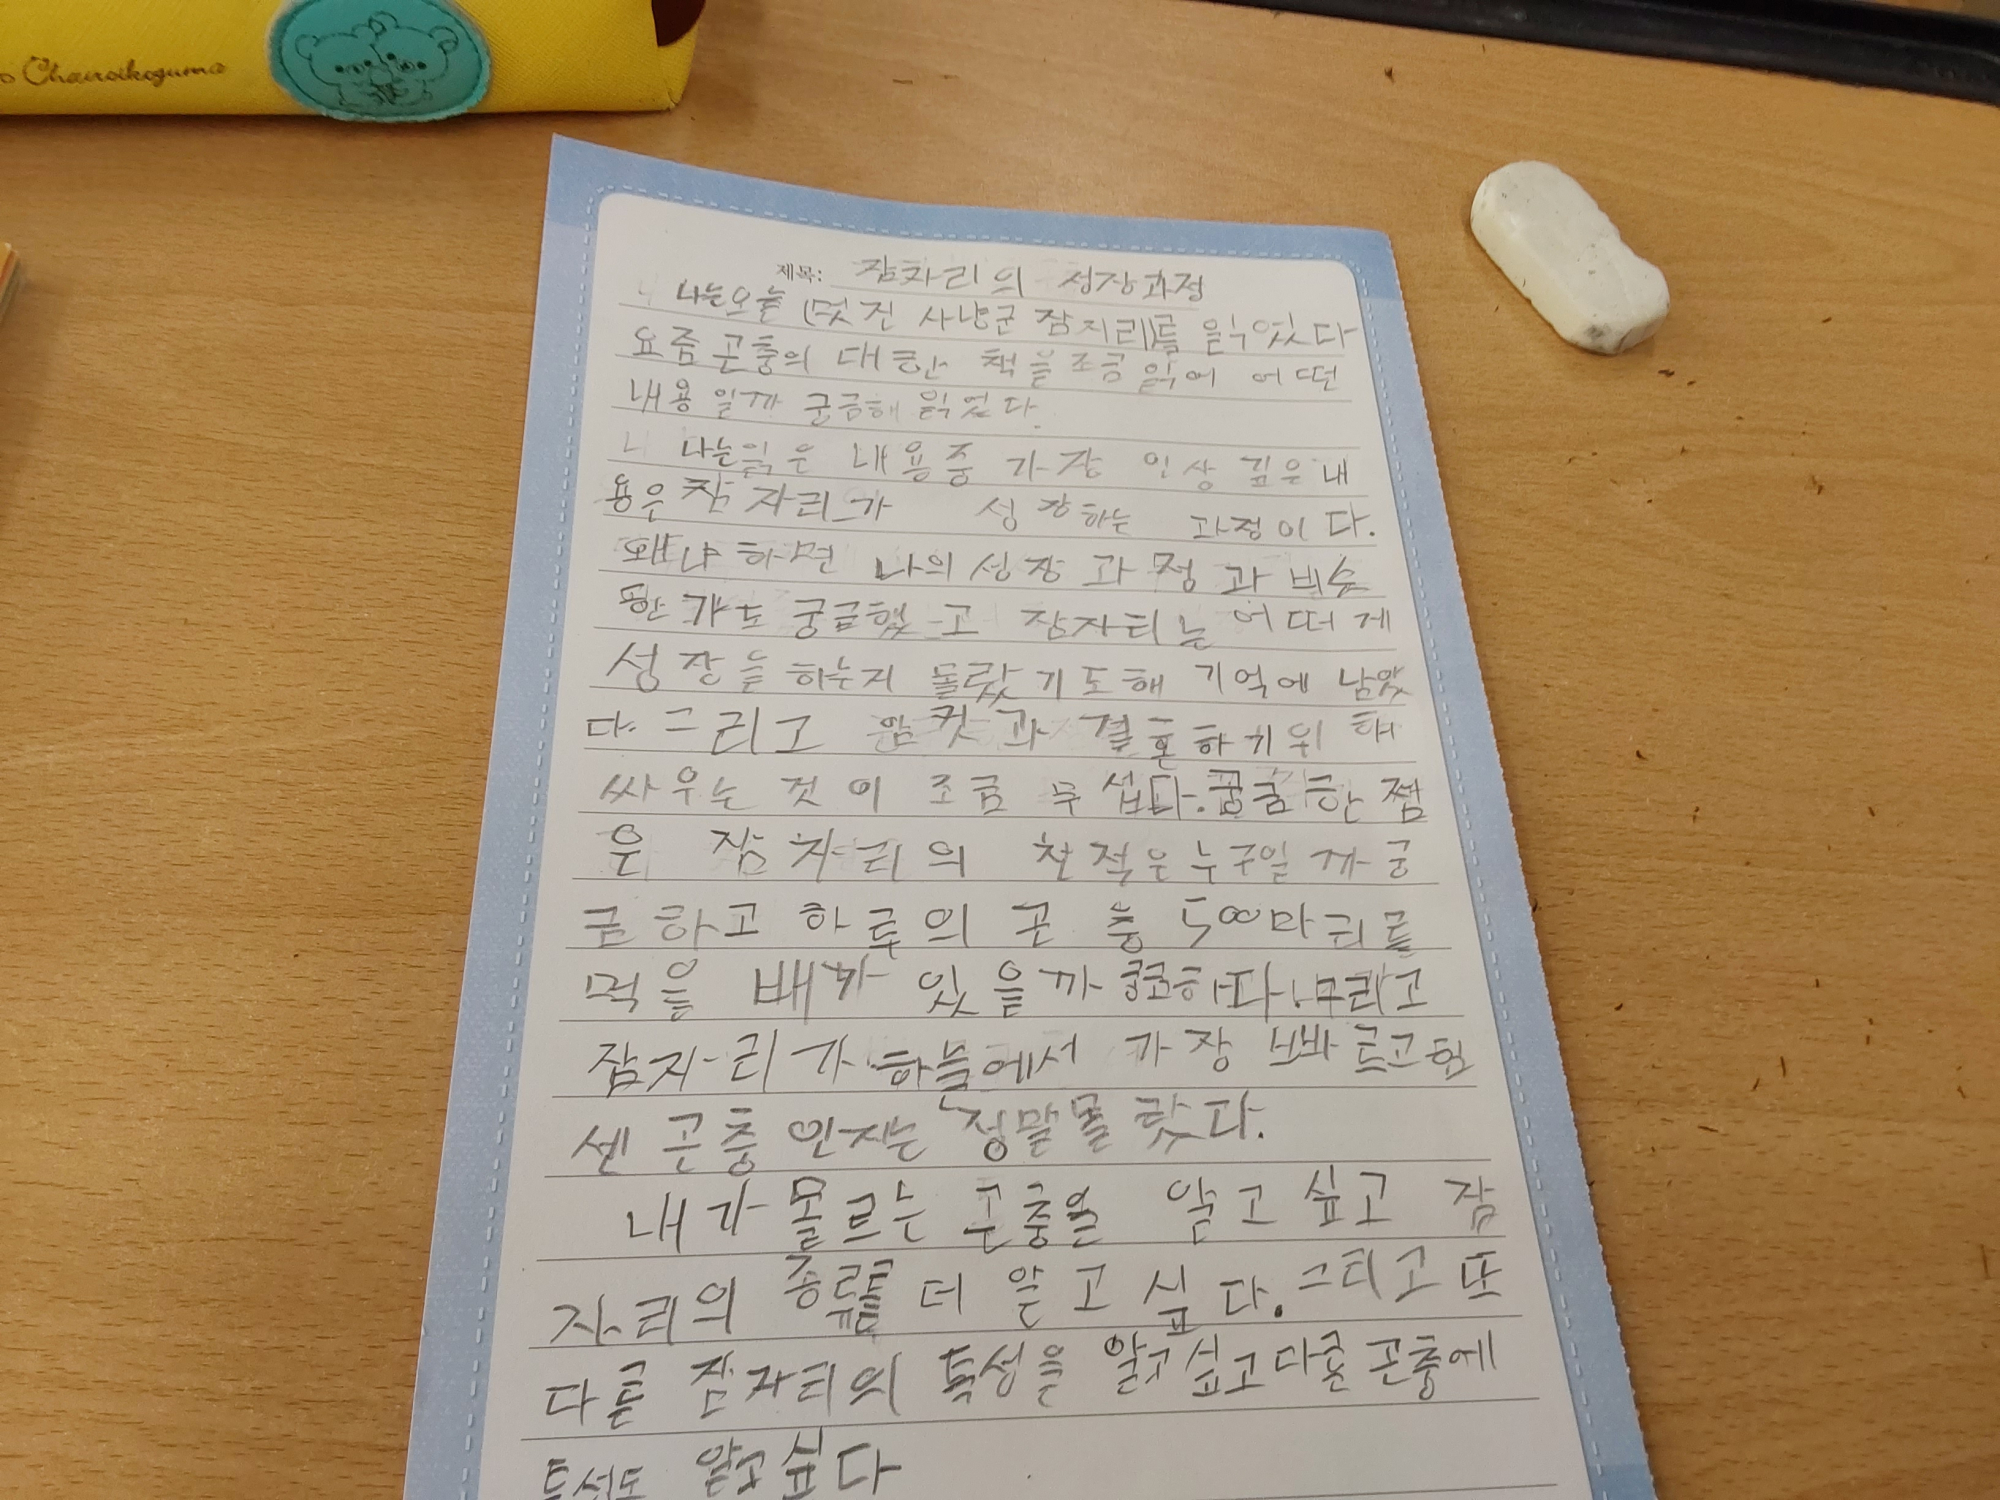 Chairoikoguma
제목: 잠자리의 성장과정
나는오늘 (멋진 사냥군 잠자리)를 읽었다
요즘곤충의 대한 책을조금읽어 어떤
내용일까 궁금해 읽었다.
나는읽은 내용중 가장 인상 깊은내
용은잠자리가 성장하는 과정이다.
왜냐하면 나의성장과정과 비슷
한가도 궁금했고 잠자리는어떠게
성장을하는지 몰랐기도해 기억에 남았
다. 그리고 암컷과 결혼하기위해
싸우는 것이 조금 무섭다.궁굼한 쩜
은 잠자리의 천적은누구일까궁
금하고 하루의 곤충 500마리를
먹을 배가 있을까 하다. 그리고
잠자리가 하늘에서 가장 빠르고힘
센 곤충인지는 정말몰랐다.
내가몰르는 곤충을 알고싶고 잠
자리의 종류를 더 알고싶다.그리고 또
다른 잠자리의 특성을 알고싶고다른곤충에
특성도 알고싶다